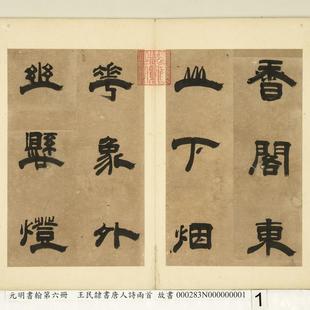 香閣東
山下烟
花象外
幽懸燈
元明書翰第六冊　王民隸書唐人詩兩首 故書 000283N000000001
1